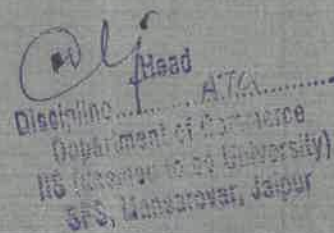 Head
Discipline.............ATA.............
Department of Commerce
IIS (deemed to be University)
SFS, Mansarovar, Jaipur